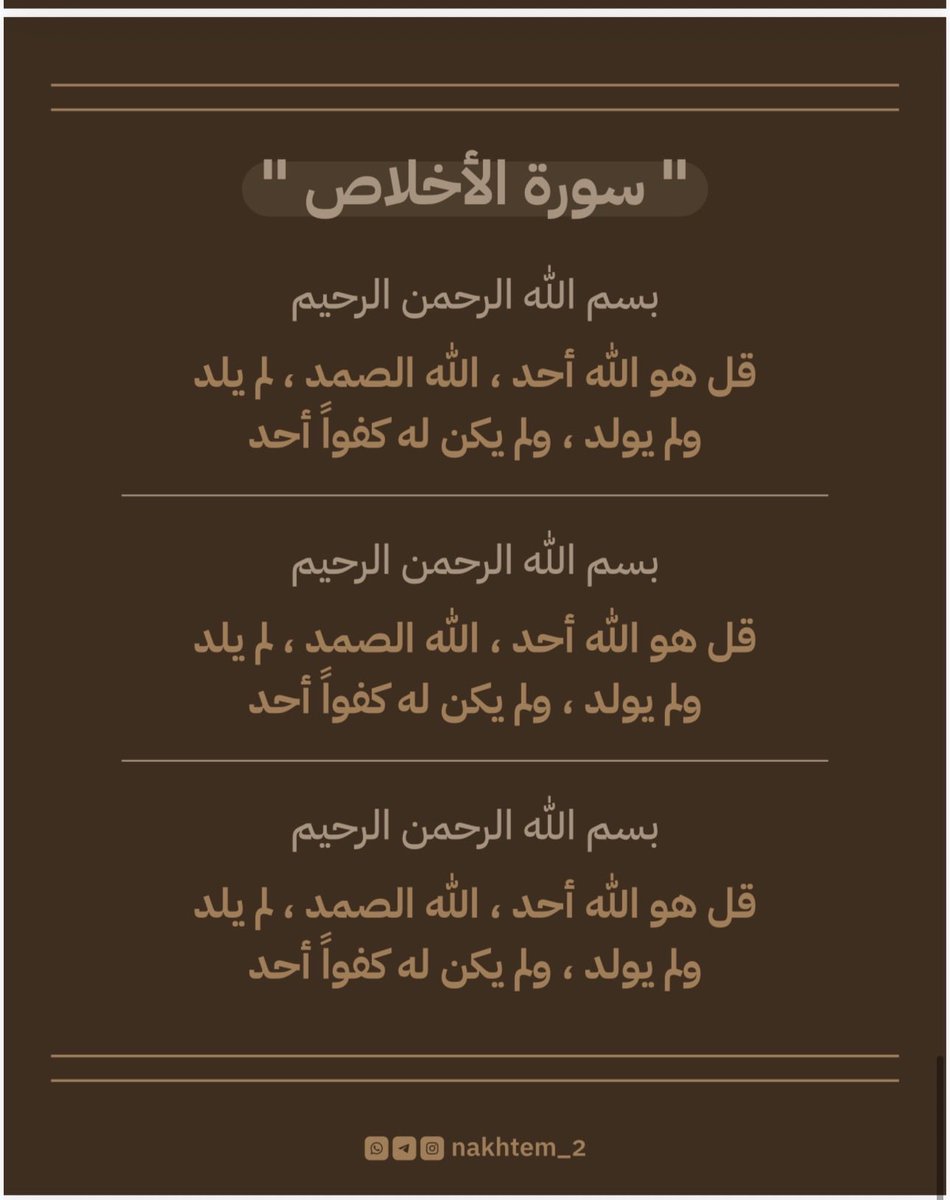 " سورة الأخلاص "
بسم الله الرحمن الرحيم
قل هو الله أحد ، الله الصمد ، لم يلد
ولم يولد ، ولم يكن له كفواً أحد
بسم الله الرحمن الرحيم
قل هو الله أحد ، الله الصمد ، لم يلد
ولم يولد ، ولم يكن له كفواً أحد
بسم الله الرحمن الرحيم
قل هو الله أحد ، الله الصمد ، لم يلد
ولم يولد ، ولم يكن له كفواً أحد
nakhtem_2